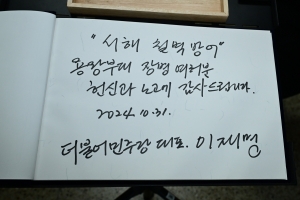 "서해 철벽 방어"
용왕부대 장병 여러분
헌신과 노고에 감사드립니다.
2024. 10. 31.
더불어민주당 대표. 이재명